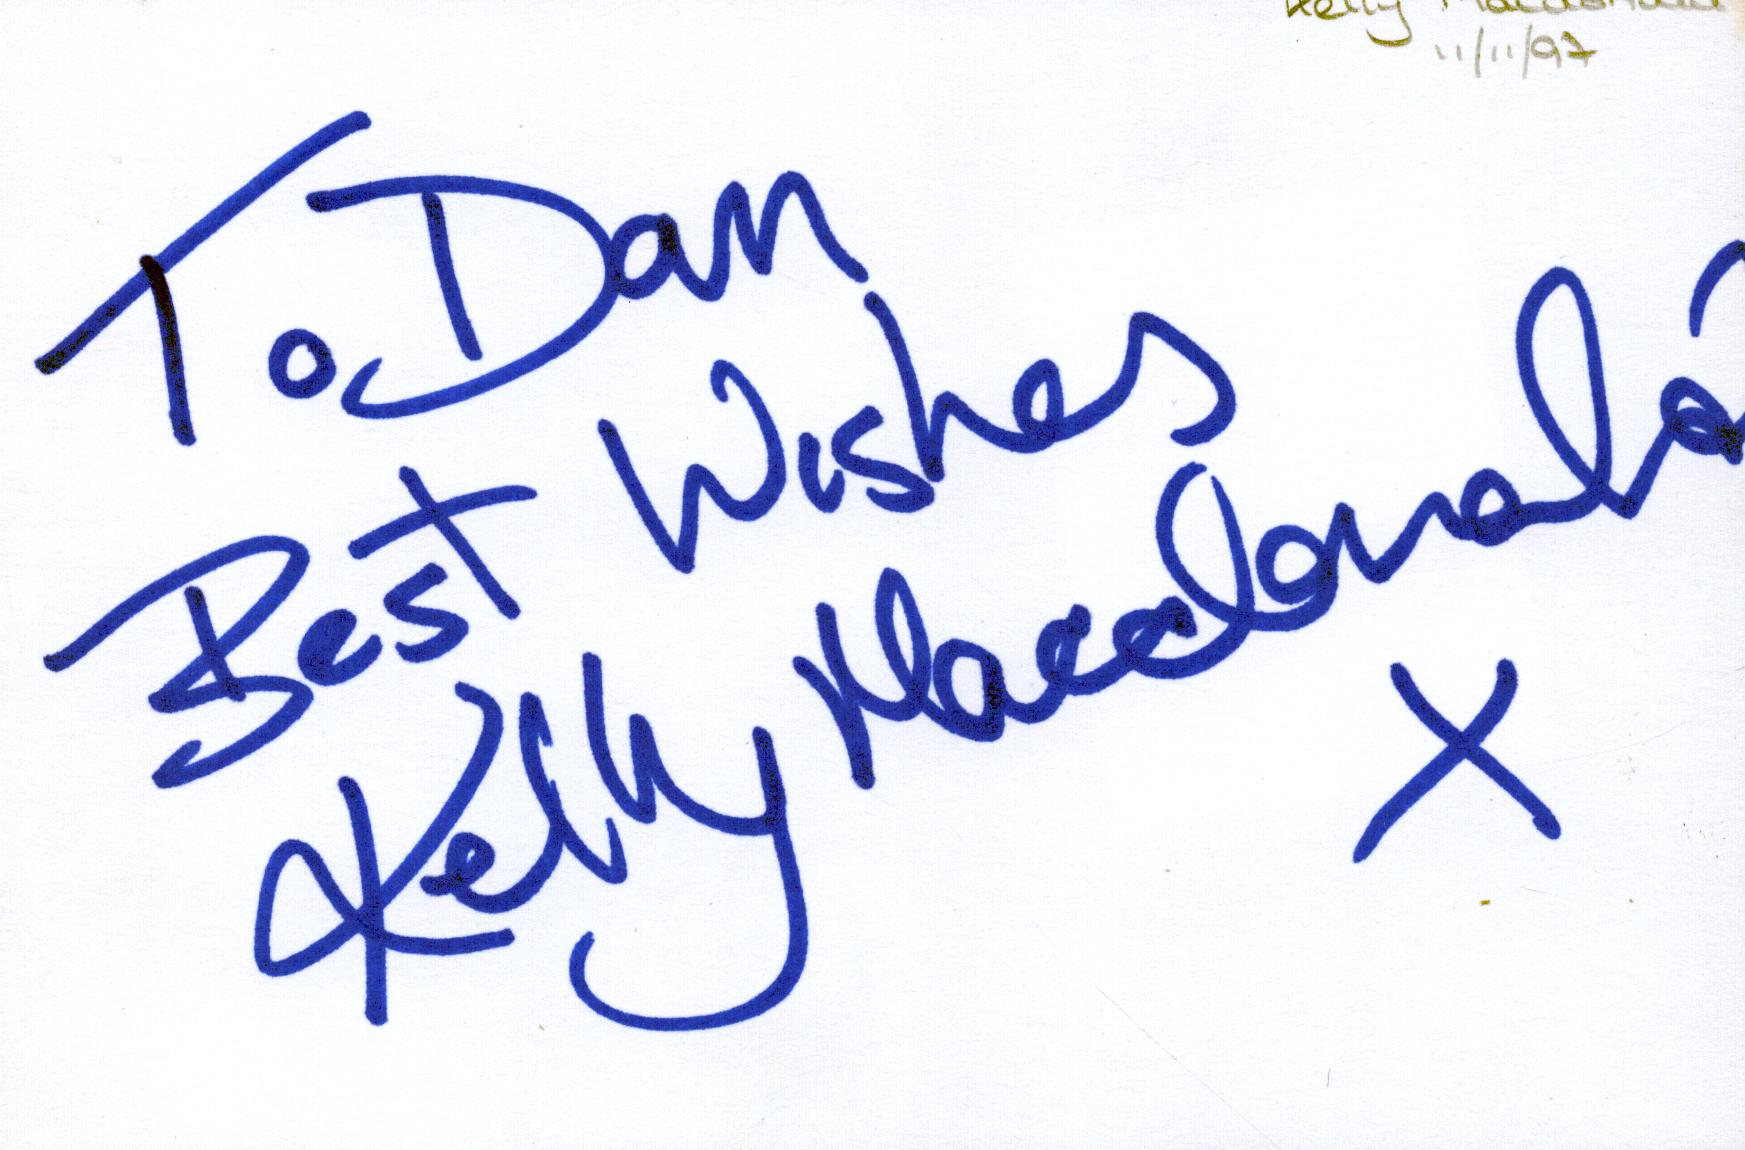 Kelly Macdonald
11/11/97
To Dan
Best Wishes
Kelly Macdonald
X